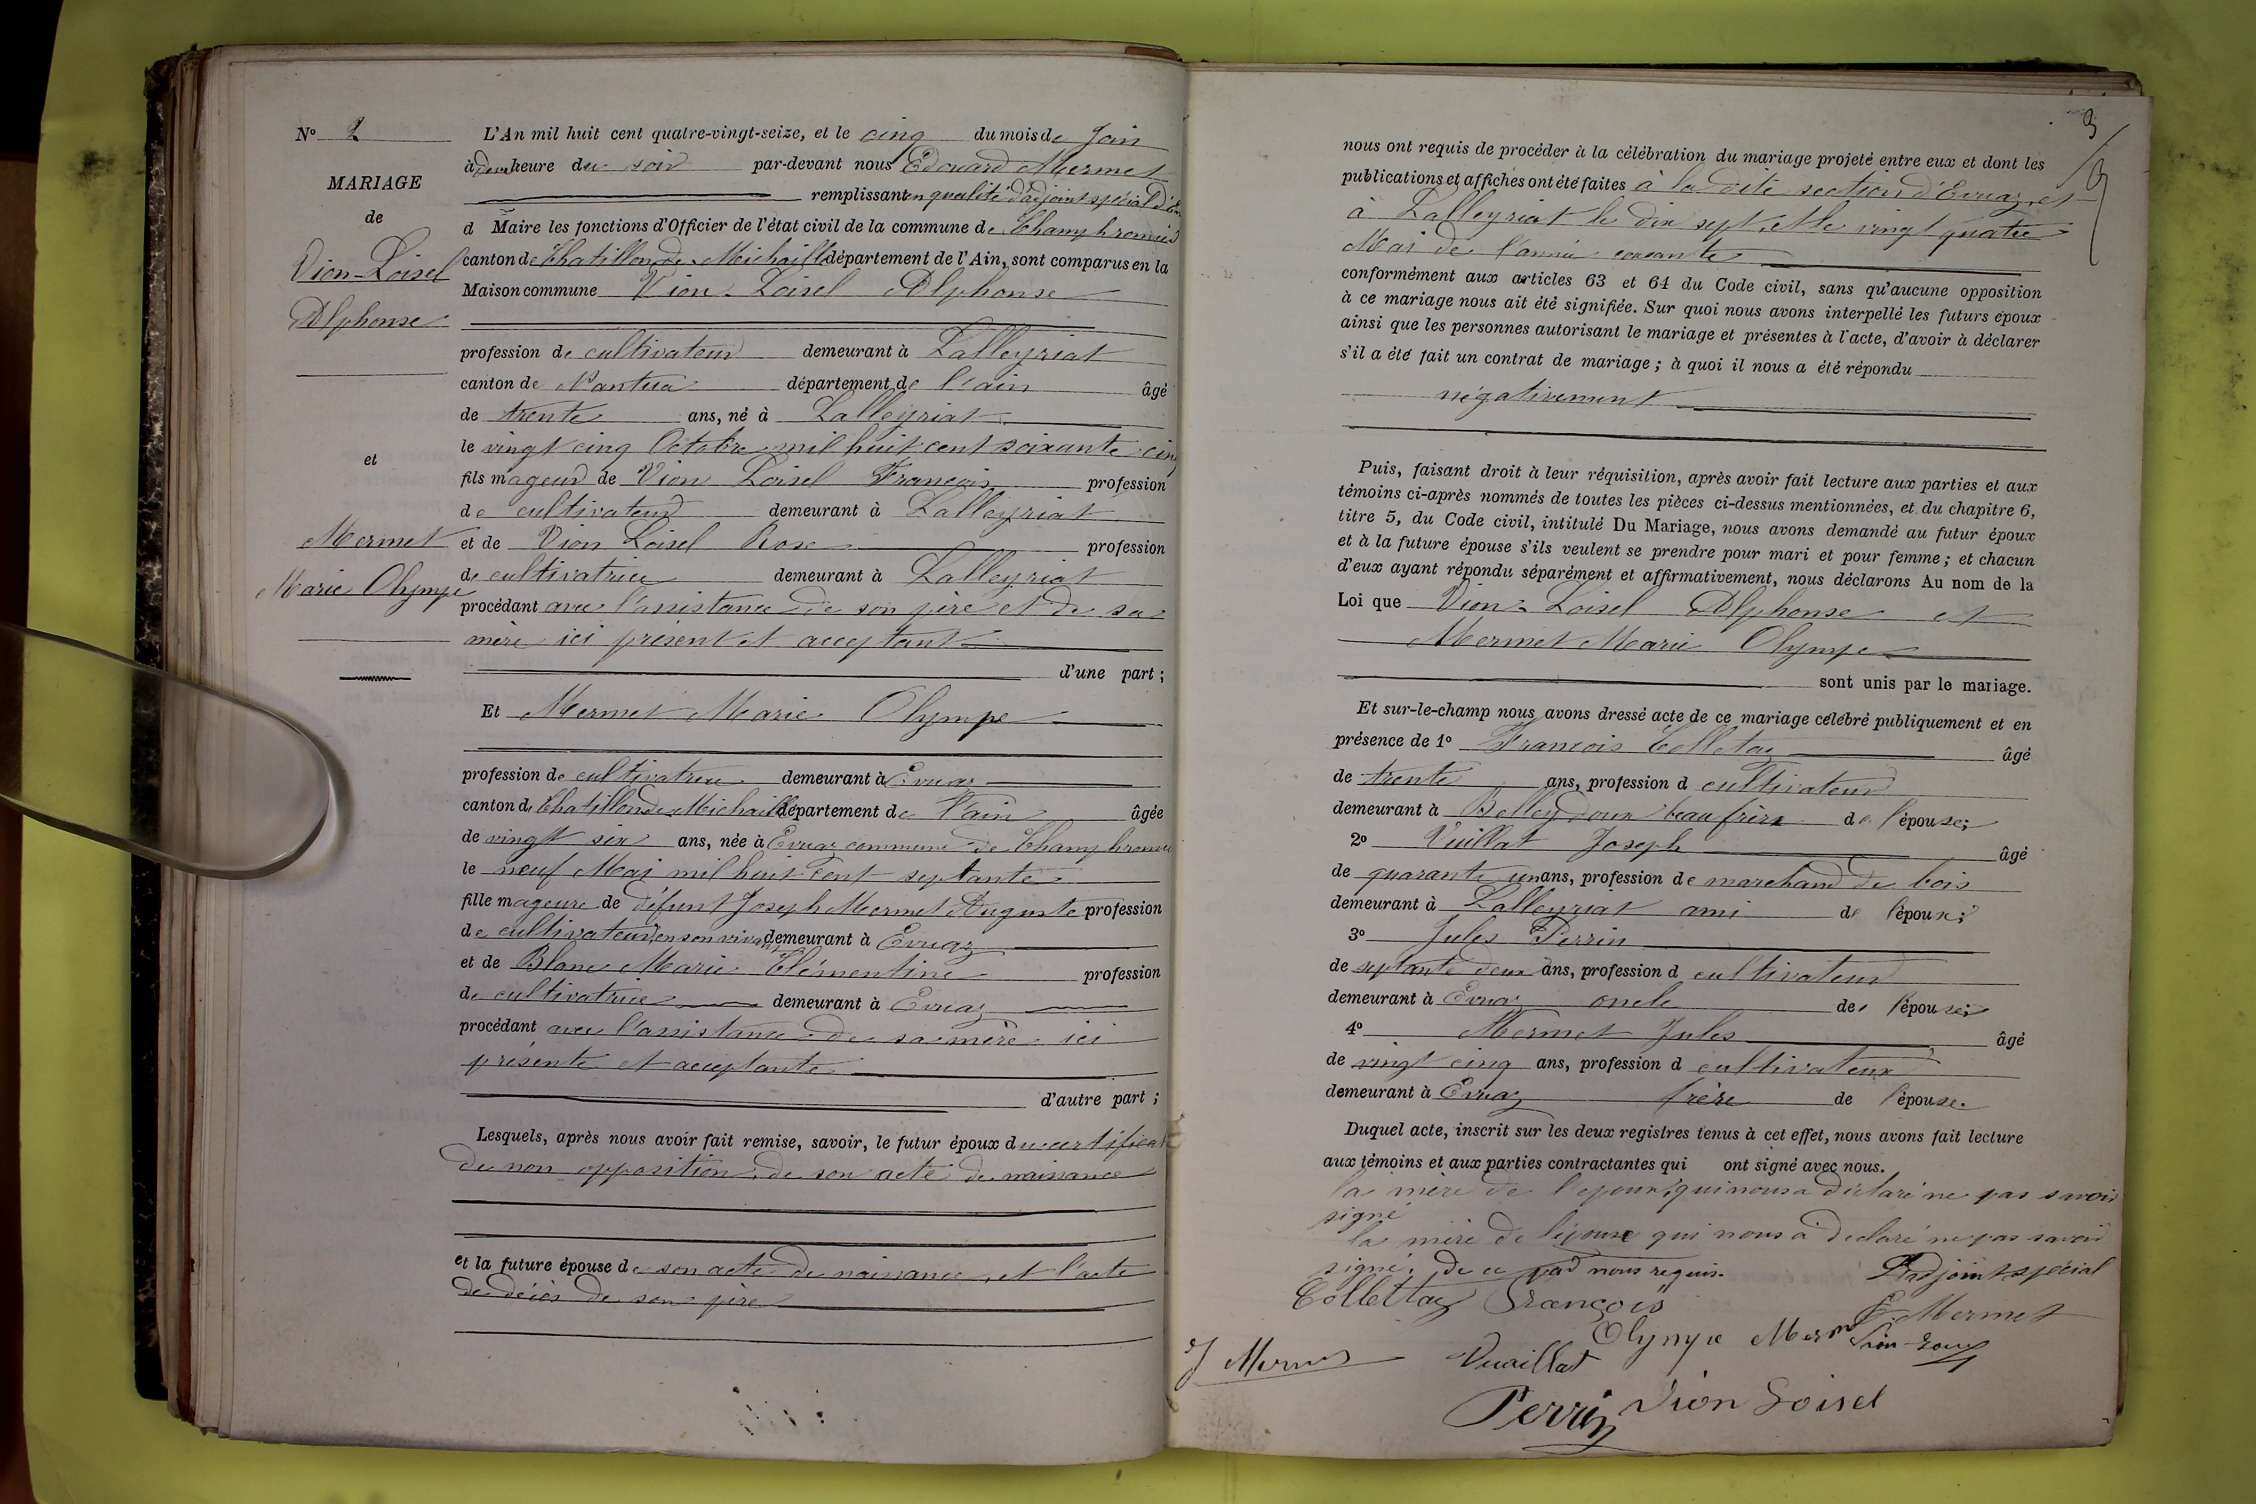 N° 2
MARIAGE
de
Vion-Loisel
Alphonse
et
Mermet
Marie Olympe
L'An mil huit cent quatre-vingt-seize, et le cinq du mois de Join
à deux heure du soir par-devant nous Edouard Mermet
remplissant en qualité d'adjoint spécial d'
d Maire les fonctions d'Officier de l'état civil de la commune de Champfromier
canton de Chatillon de Michaille département de l'Ain, sont comparus en la
Maison commune Vion-Loisel Alphonse
profession de cultivateur demeurant à Lalleyriat
canton de Nantua département de l'ain âgé
de trente ans, né à Lalleyriat
le vingt cinq Octobre mil huit cent soixante cinq
fils mageur de Vion Loisel François profession
de cultivateur demeurant à Lalleyriat
et de Vion Loisel Rose profession
de cultivatrice demeurant à Lalleyriat
procédant avec l'assistance de son père et de sa
mère ici présent et acceptant
d'une part ;
Et Mermet Marie Olympe
profession de cultivatrice demeurant à Evuaz
canton de Chatillon de Michaille département de l'ain âgée
de vingt six ans, née à Evuaz commune de Champfromier
le neuf Mai mil huit cent septante
fille mageure de défunt Joseph Mermet Auguste profession
de cultivateur en son vivant demeurant à Evuaz
et de Blanc Marie Clémentine profession
de cultivatrice demeurant à Evuaz
procédant avec l'assistance de sa mère ici
présente et acceptante
d'autre part ;
Lesquels, après nous avoir fait remise, savoir, le futur époux du certificat
de non opposition, de son acte de naissance
et la future épouse de son acte de naissance, et l'acte
de décès de son père
3
nous ont requis de procéder à la célébration du mariage projeté entre eux et dont les
publications et affiches ont été faites à la dite section d'Evuaz, et
à Lalleyriat le dix sept, et le vingt quatre
Mai de l'année courante
conformément aux articles 63 et 64 du Code civil, sans qu'aucune opposition
à ce mariage nous ait été signifiée. Sur quoi nous avons interpellé les futurs époux
ainsi que les personnes autorisant le mariage et présentes à l'acte, d'avoir à déclarer
s'il a été fait un contrat de mariage ; à quoi il nous a été répondu
négativement
Puis, faisant droit à leur réquisition, après avoir fait lecture aux parties et aux
témoins ci-après nommés de toutes les pièces ci-dessus mentionnées, et du chapitre 6,
titre 5, du Code civil, intitulé Du Mariage, nous avons demandé au futur époux
et à la future épouse s'ils veulent se prendre pour mari et pour femme ; et chacun
d'eux ayant répondu séparément et affirmativement, nous déclarons Au nom de la
Loi que Vion-Loisel Alphonse et
Mermet Marie Olympe
sont unis par le mariage.
Et sur-le-champ nous avons dressé acte de ce mariage célébré publiquement et en
présence de 1° François Collettaz âgé
de trente ans, profession d cultivateur
demeurant à Belleydoux beau frère de l'épouse;
2° Vuillat Joseph âgé
de quarante un ans, profession de marchand de bois
demeurant à Lalleyriat ami de l'époux;
3° Jules Perrin
de septante deux ans, profession d cultivateur
demeurant à Evuaz oncle de l'épouse;
4° Mermet Jules âgé
de vingt cinq ans, profession d cultivateur
demeurant à Evuaz frère de l'épouse.
Duquel acte, inscrit sur les deux registres tenus à cet effet, nous avons fait lecture
aux témoins et aux parties contractantes qui ont signé avec nous.
la mère de l'epoux, qui nous a déclaré ne pas savoir
signé
la mère de l'épouse qui nous a declaré ne pas savoir
signé. de ce nous requis.
L'adjoint spécial
Collettaz François
E. Mermet
Olympe Mermet
J Mermet
Vuaillat
Perrin
Vion Loisel